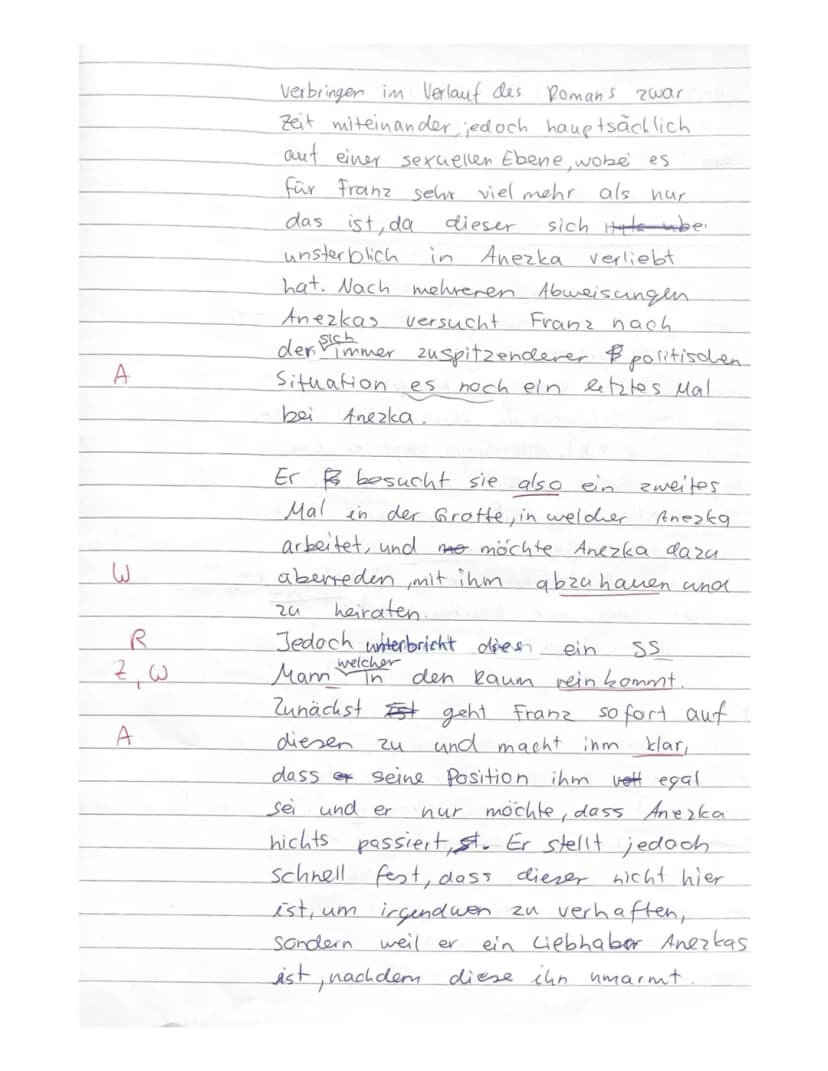 verbringen im Verlauf des Romans zwar
Zeit miteinander, jedoch hauptsächlich
auf einer sexuellen Ebene, wobei es
für Franz sehr viel mehr als nur
das ist, da dieser sich
unsterblich in Anezka verliebt
hat. Nach mehreren Abweisungen
Anezkas versucht Franz nach
der sich immer zuspitzenderer politischen
A Situation es noch ein letztes Mal
bei Anezka.
Er besucht sie also ein zweites
Mal in der Grotte, in welcher Anezka
arbeitet, und möchte Anezka dazu
W überreden, mit ihm abzuhauen und
zu heiraten.
R Jedoch unterbricht dies ein SS
Z, W Mann welcher in den Raum reinkommt.
Zunächst geht Franz sofort auf
A diesen zu und macht ihm klar,
dass seine Position ihm egal
sei und er nur möchte, dass Anezka
nichts passiert. Er stellt jedoch
schnell fest, dass dieser nicht hier
ist, um irgendwen zu verhaften,
sondern weil er ein Liebhaber Anezkas
ist, nachdem diese ihn umarmt.